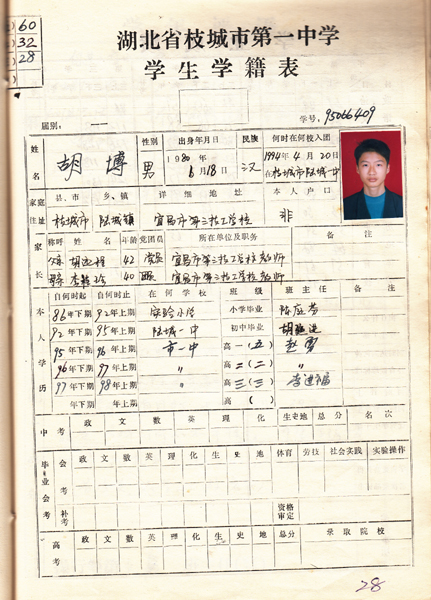 60
32
28
湖北省枝城市第一中学
学生学籍表
学号: 95066409
届别:
姓名 胡博 性别 男 出身年月日 1980年6月18日 民族 汉 何时在何校入团 1994年4月20日
在枝城市陆城一中
家庭住址 县、市 乡、镇 详细地址 本人户口
枝城市 陆城镇 宜昌市第三技工学校 非
家长 称呼 姓名 年龄 党团员 所在单位及职务 备注
42 党员 宜昌市第三技工学校教师
40 宜昌市第三技工学校教师
本人学历 自何时起 自何时止 在何学校 班级 班主任 备注
86年下期 92年上期 实验小学 小学毕业 陈应芬
92年下期 95年上期 陆城一中 初中毕业
95年下期 96年上期 市一中 高一(五) 赵勇
96年下期 97年上期 〃 高二(二) 〃
97年下期 98年上期 〃 高三(三)
年下期 年上期 高( )
中考 政 文 数 英 理 化 生史地 总分 名次
毕业会考 会考 政 文 数 英 理 化 生 史 地 体育 劳技 社会实践 实验操作
补考 资格审定
高考 政 文 数 英 理 化 生 史 地 总分 录取院校
28